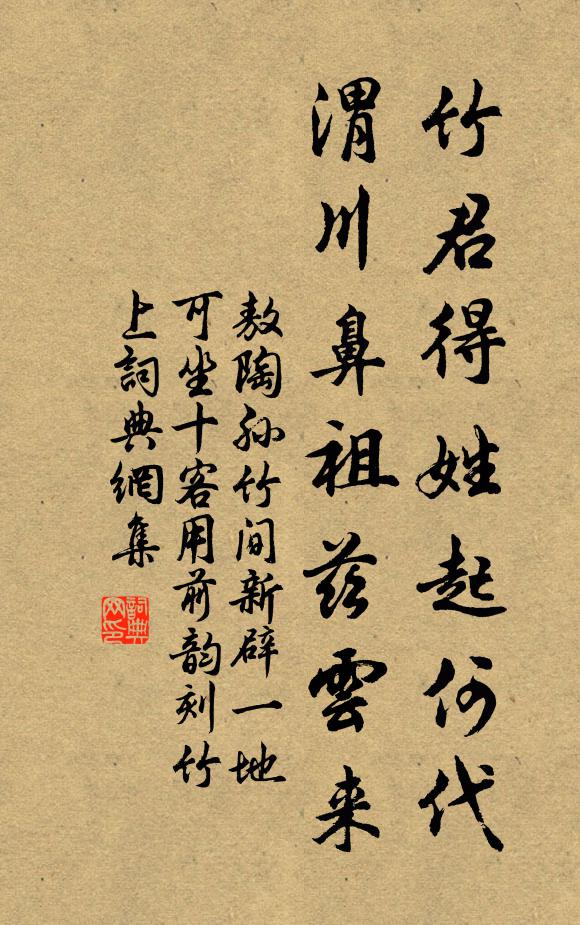 竹君得姓起何代
渭川鼻祖兹雲来
敖陶孫竹间新辟一地
可坐十客用前韵刻竹
上詞典網集
詞典
网印